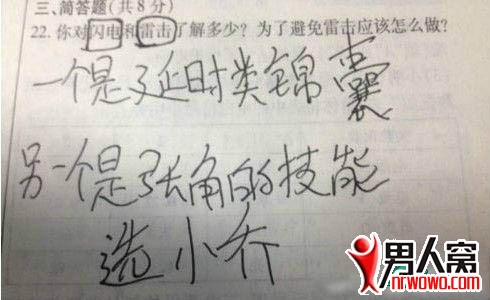 三、简答题(共8分)
22. 你对闪电和雷击了解多少？为了避免雷击应该怎么做？
一个是延时类锦囊
另一个是张角的技能
选小乔
男人窝
nrwowo.com